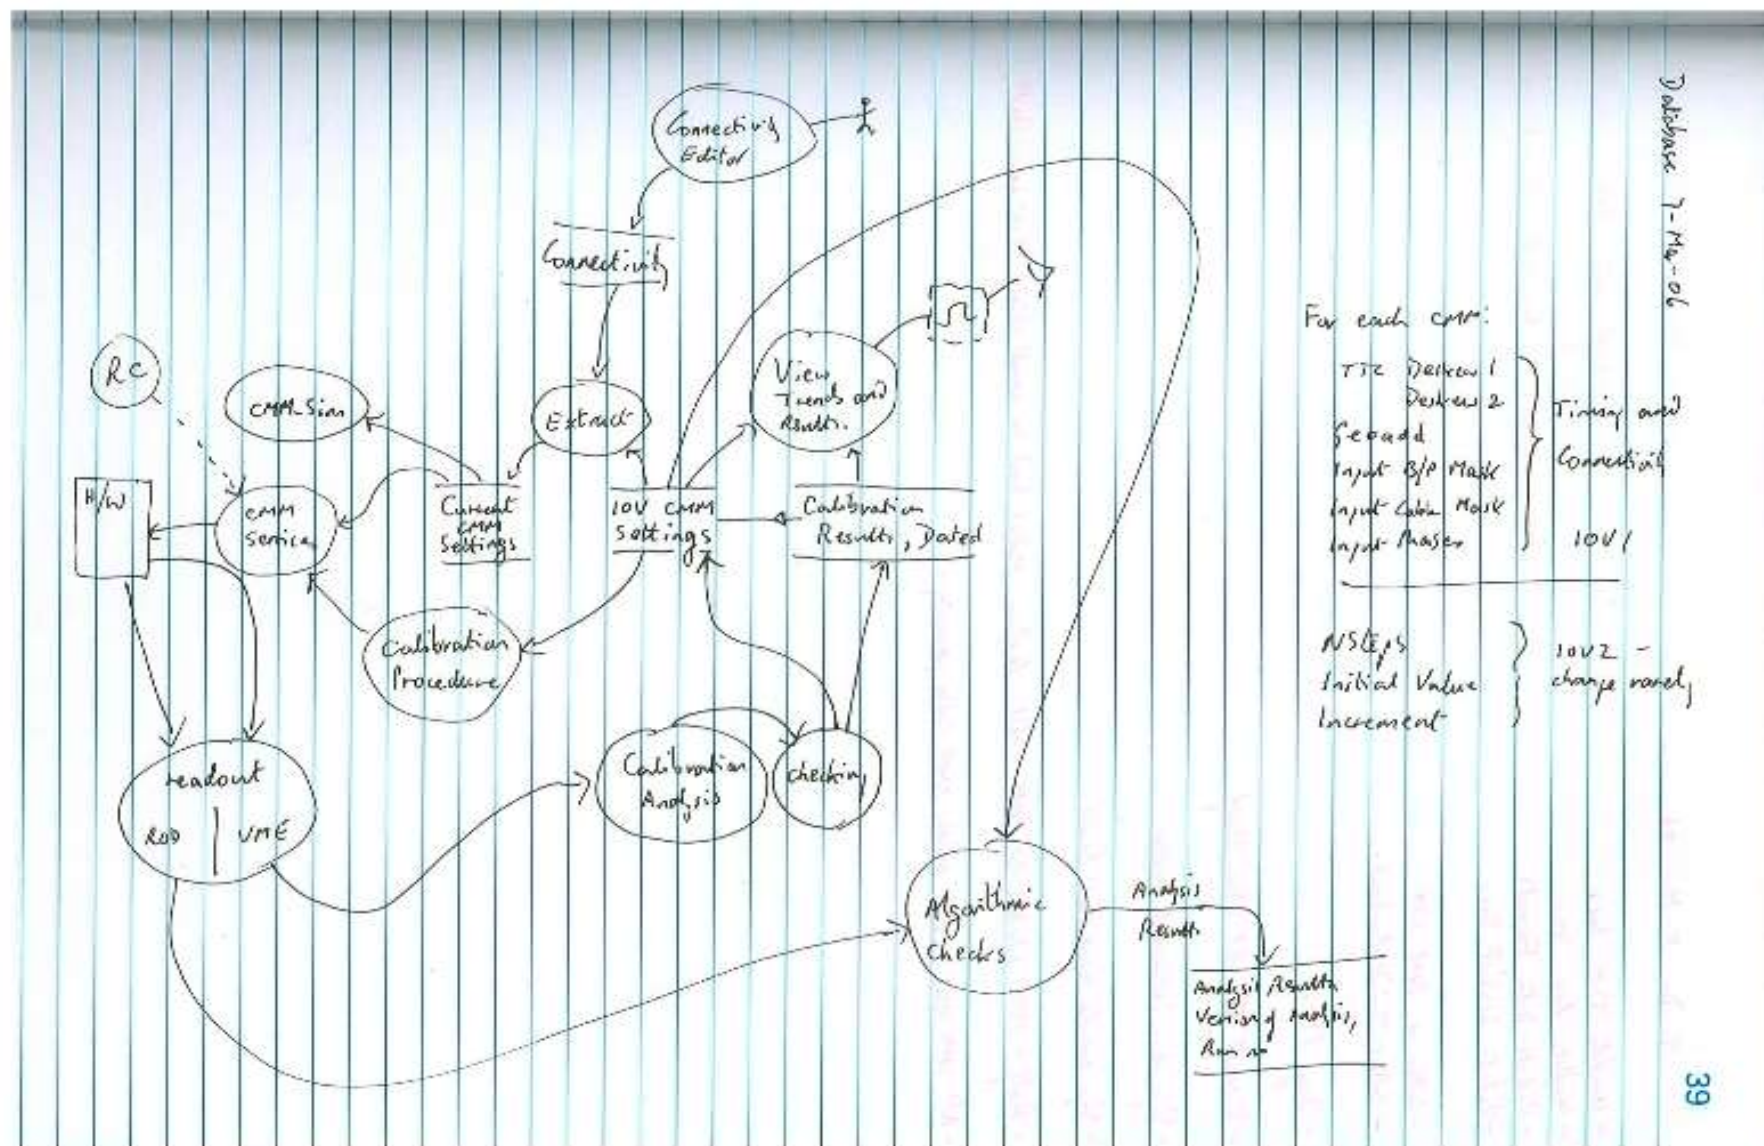 Database 7-Mar-06
Connectivity
Editor
Connectivity
RC
CMM-Sim
Extract
View
Trends and
Results.
H/W
CMM
Services
Current
CMM
Settings
IOV CMM
Settings
Calibration
Results, Dated
Calibration
Procedure
readout
ROD | VME
Calibration
Analysis
Checking
Algorithmic
Checks
Analysis
Results
Analysis Results
Version of Analysis,
Run no
For each CMM:
TTC Deskew 1
Deskew 2
Geoadd
Input B/P Mask
Input Cable Mask
Input Phases
Timing and
Connectivity
IOV1
NSteps
Initial Value
Increment
IOV2 -
change rarely
39